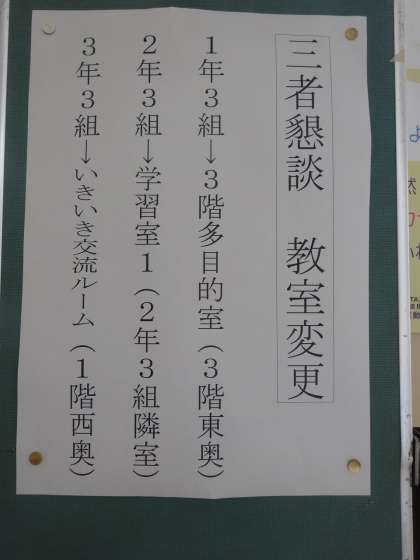 三者懇談　教室変更
1年3組→3階多目的室（3階東奥）
2年3組→学習室1（2年3組隣室）
3年3組→いきいき交流ルーム（1階西奥）